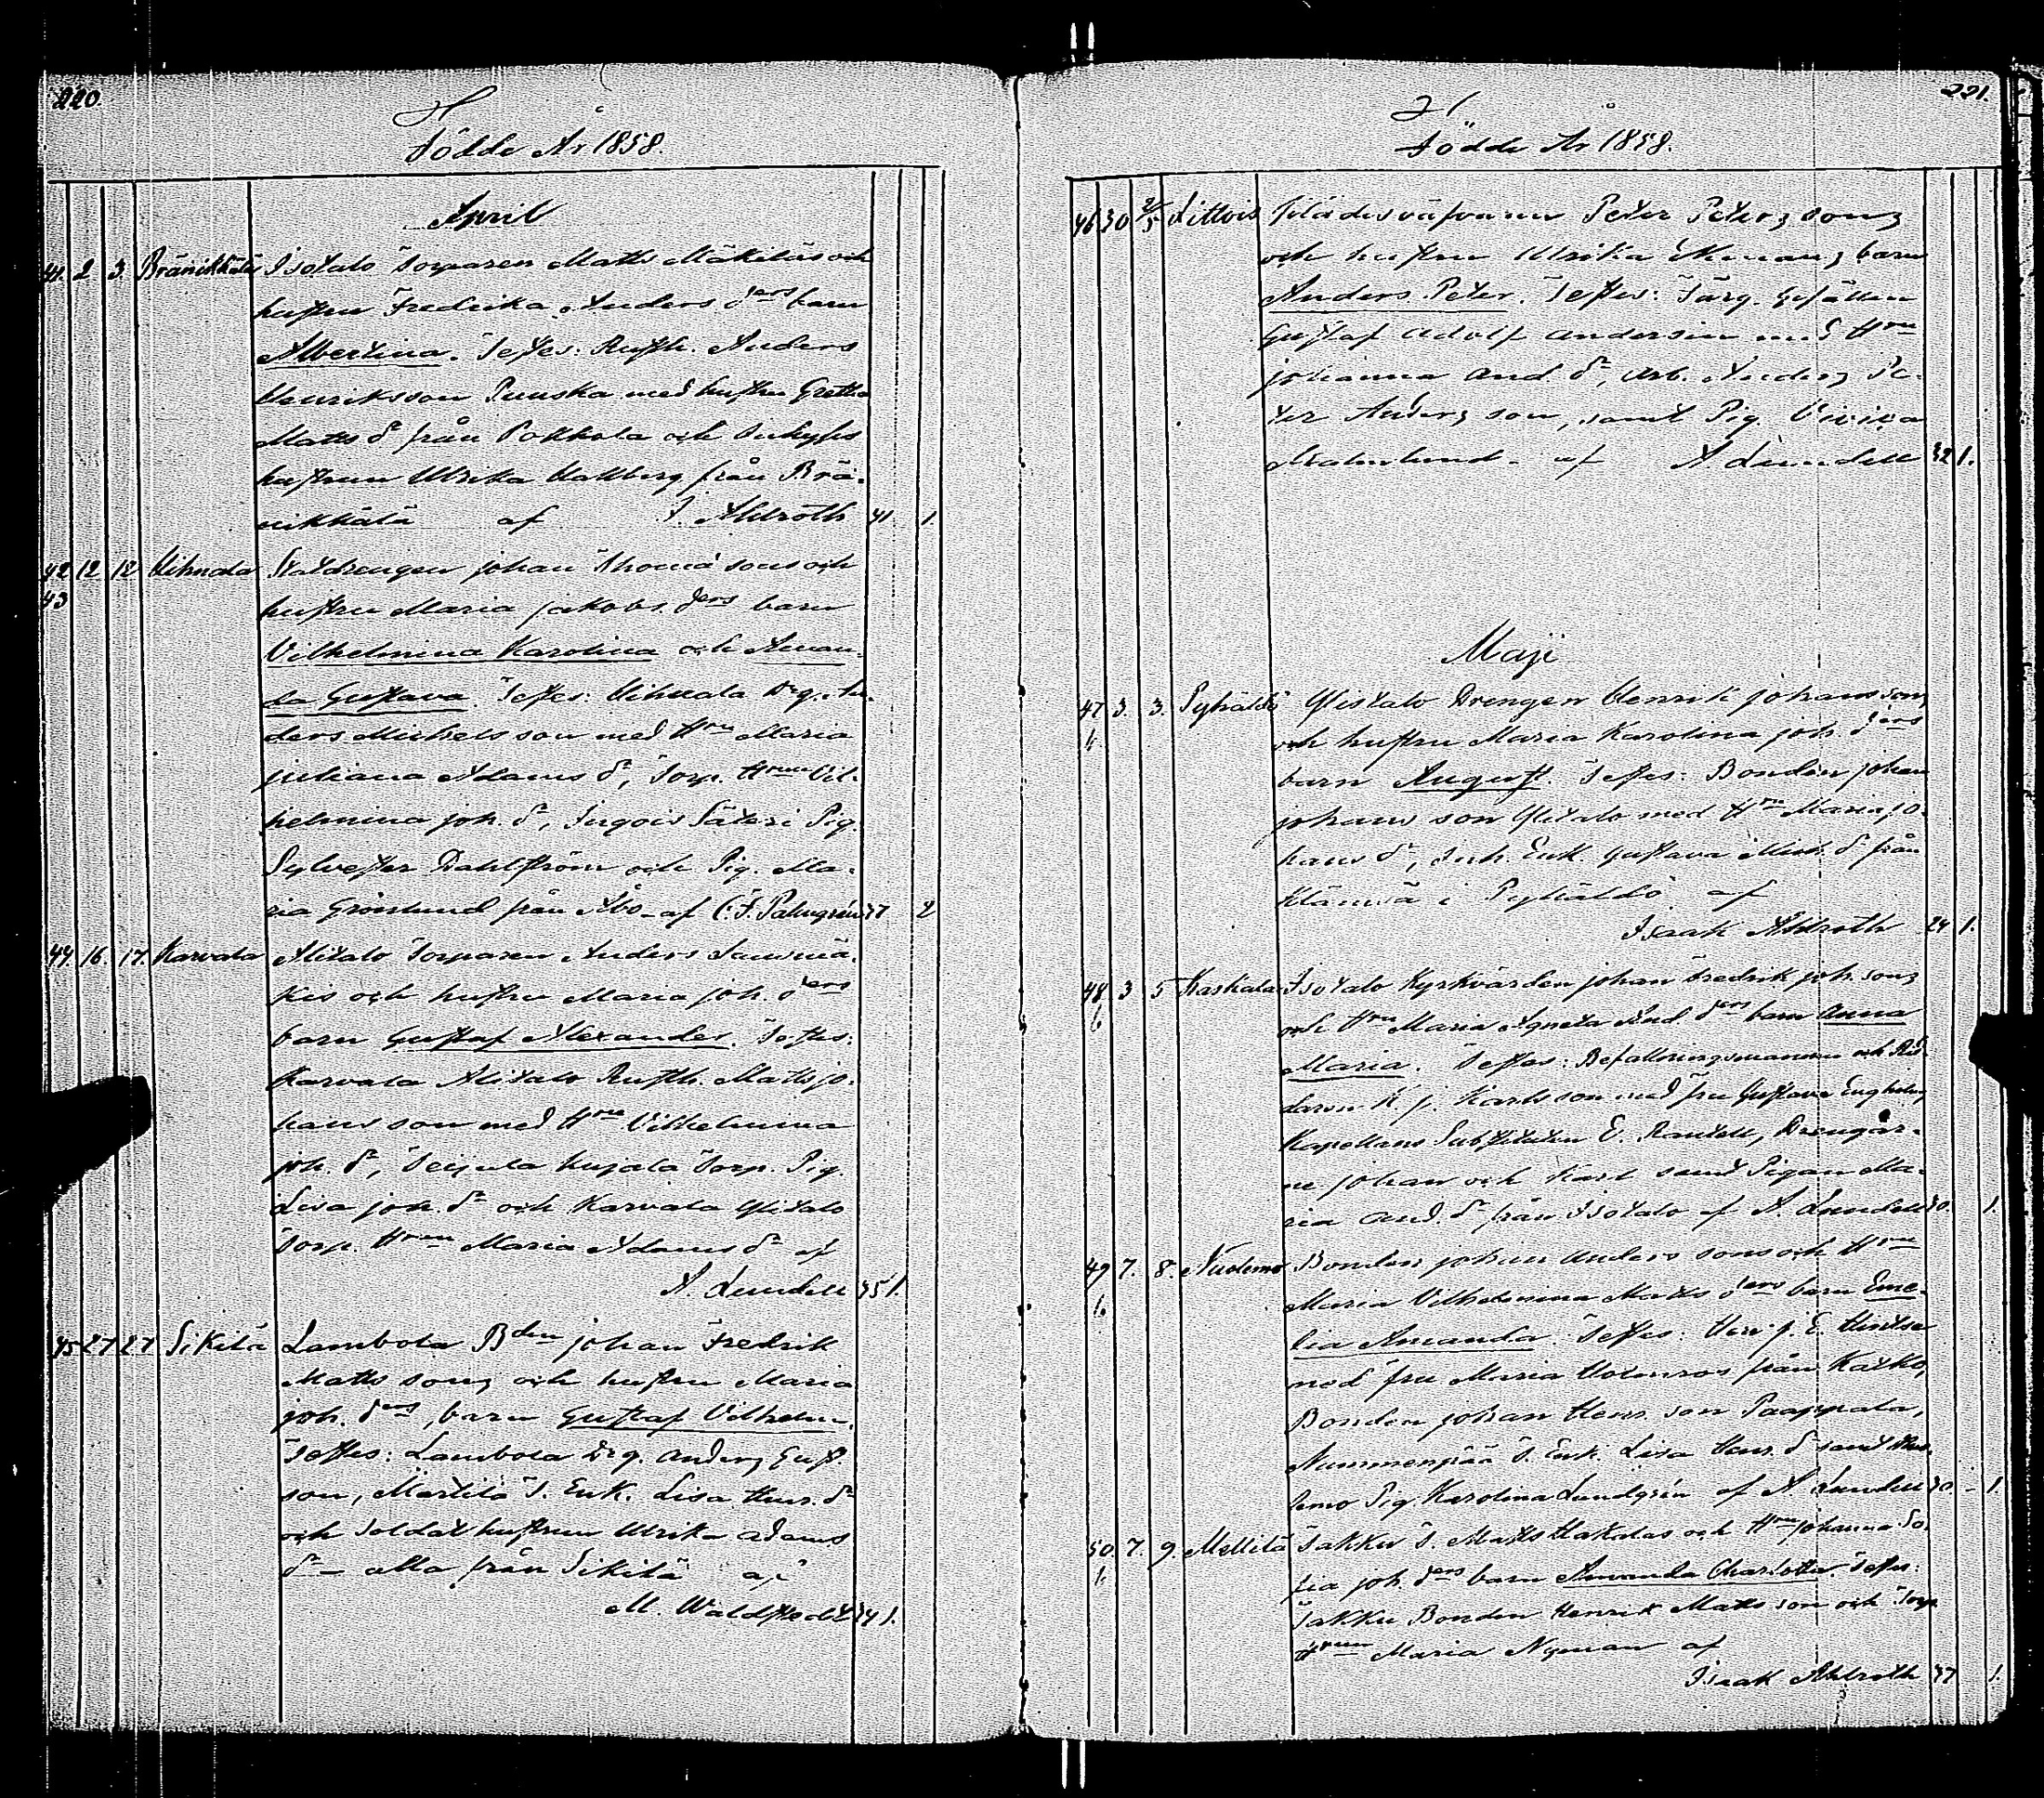 220.
Födde År 1858.
April
41. 2 3. Bränikkälä Isotalo Torparen Matts Mäkiläs och
hustru Fredrika Anders drs barn
Albertina. Testes: Rusth. Anders
Henriksson Puuska med hustru Gretha
Matts dr från Pokkola och Inhyses
hustrun Ulrika Hallberg från Brä-
nikkälä af I. Ahlroth 41 1.
42 12 12 Vihnala Statdrengen Johan Thomæ sons och
43 hustru Maria Jakobs. drs barn
Vilhelmina Karolina och Aman-
da Gustava. Testes: Vihuala Drg. An-
ders Michels son med Hru Maria
Juliana Adams dr, Torp. Hrun Vil-
helmina Joh. dr, Säteri Pig.
Sylvester Dahlström och Pig. Ma-
ria Grönlund från Åbo af C. F. Palmgrén 37 2
44. 16. 17. Karvala Alitalo Torparen Anders
kis och hustru Maria Joh. drs
barn Gustaf Alexander. Testes:
Karvala Alitalo Rusth. Matts Jo-
hans son med Hru Vilhelmina
Joh. dr, Kujala Torp. Pig.
Lisa Joh. dr och Karvala Ylitalo
Torp. Hrun Maria Adams dr af
A. Lundell 35 1.
45 27 27 Sikilä Lambola Bden Johan Fredrik
Matts sons och hustru Maria
Joh. drs, barn Gustaf Vilhelm.
Testes: Lambola Drg. Anders Gust.
son, Märtilä T. Enk. Lisa Henr. dr
och Soldat hustrun Ulrika Adams
dr – alla från Sikilä af
M. Waldstedt 34 1.
221.
Födde År 1858.
46 30 2/5 Littois Klädesväfvaren Peter Peters sons
och hustru Ulrika barn
Anders Peter. Testes: Färg. Gesällen
Gustaf Adolf Andersin med Hru
Johanna And. dr, Arb. Anders Pe-
ter Anders son, samt Pig. Vivika
Malmlund af A. Lundell 32 1.
Maji
47 3. 3. Pyhältö Ylistalo Drengen Henrik Johans sons
och hustru Maria Karolina Joh. drs
barn August. Testes: Bonden Johan
Johans son Ylitalo med Hru Maria Jo-
hans dr, Inh. Enk. Gustava Mich. dr från
i Pyhältö af
Isaak Ahlroth 24 1.
48. 3 5 Kaskala Isotalo Kyrkvärden Johan Fredrik Joh. sons
och Hru Maria Agneta And. drs barn Anna
Maria. Testes: Befallningsmannen och
K. J. Karlsson med fru Gustava
Kapellans Substituten E. Rantell, Drengar-
ne Johan och Karl samt Pigan Ma-
ria And. dr från Isotalo af A. Lundell 30. 1.
49 7. 8. Nuolemo Bonden Johan Anders sons och Hru
Maria Vilhelmina Matts drs barn Eme-
lia Amanda. Testes: Herr J. E.
med fru Maria från
Bonden Johan Henr. son Paappala,
Nummenpää T. Enk. Lisa Henr. dr samt Nuo-
lemo Pig. Karolina Lundgrén af A. Lundell 30. – 1.
50. 7. 9. Mellilä Jakku T. Matts Hakalas och Hru Johanna So-
fia Joh. drs barn Amanda Charlotta. Testes:
Jakku Bonden Henrik Matts son och Torp.
Hrun Maria Nyman af
Isaak Ahlroth 37 1.